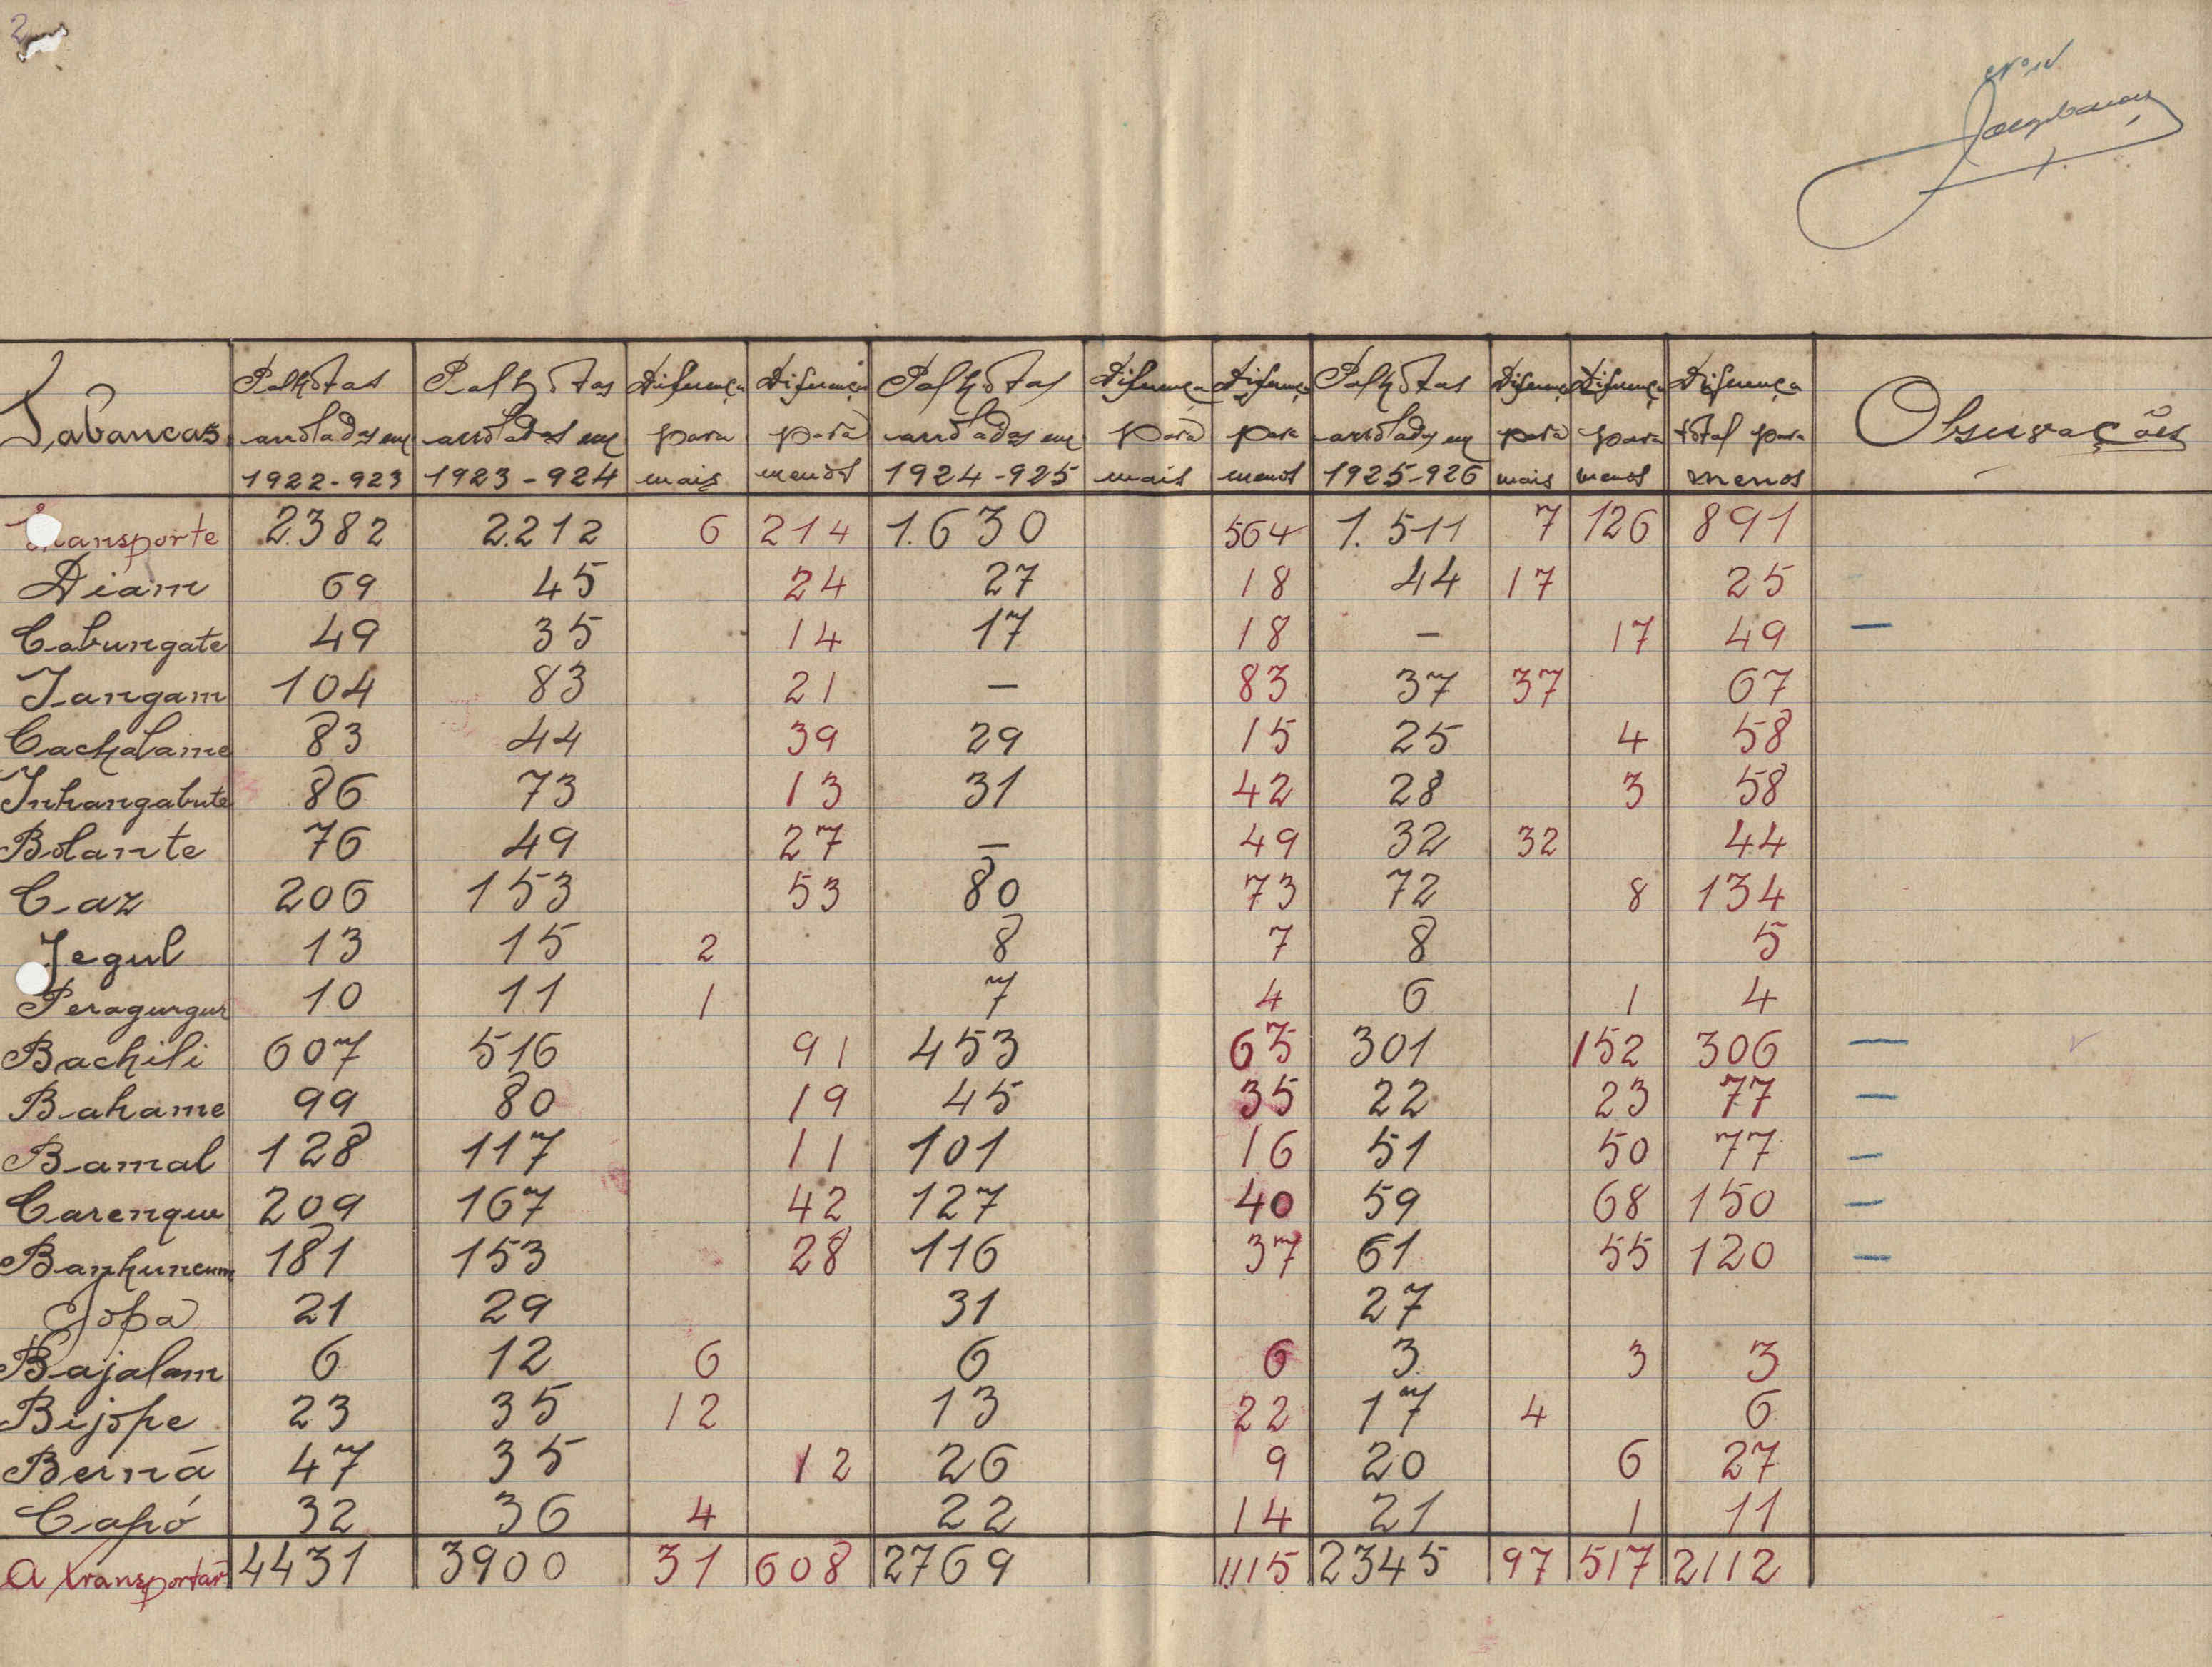 2
Nº 12
Tabancas | Palhotas aroladas em 1922-923 | Palhotas aroladas em 1923-924 | Diferença para mais | Diferença para menos | Palhotas aroladas em 1924-925 | Diferença para mais | Diferença para menos | Palhotas aroladas em 1925-926 | Diferença para mais | Diferença para menos | Diferença total para menos | Observações
Transporte 2.382 2.212 6 214 1.630 564 1.511 7 126 891
Diam 69 45 24 27 18 44 17 25
Cabungate 49 35 14 17 18 — 17 49 —
Jangam 104 83 21 — 83 37 37 67
Cachobame 83 44 39 29 15 25 4 58
Inhangabute 86 73 13 31 42 28 3 58
Bolante 76 49 27 — 49 32 32 44
Caz 206 153 53 80 73 72 8 134
Jegul 13 15 2 8 7 8 5
Peragungur 10 11 1 7 4 6 1 4
Bachili 607 516 91 453 63 301 152 306 —
Bahame 99 80 19 45 35 22 23 77 —
Bamal 128 117 11 101 16 51 50 77 —
Carenque 209 167 42 127 40 59 68 150 —
Banhuncum 181 153 28 116 37 61 55 120 —
Jopa 21 29 31 27
Bajalam 6 12 6 6 6 3 3 3
Bijope 23 35 12 13 22 17 4 6
Berná 47 35 12 26 9 20 6 27
Capó 32 36 4 22 14 21 1 11
A transportar 4431 3900 31 608 2769 1115 2345 97 517 2112